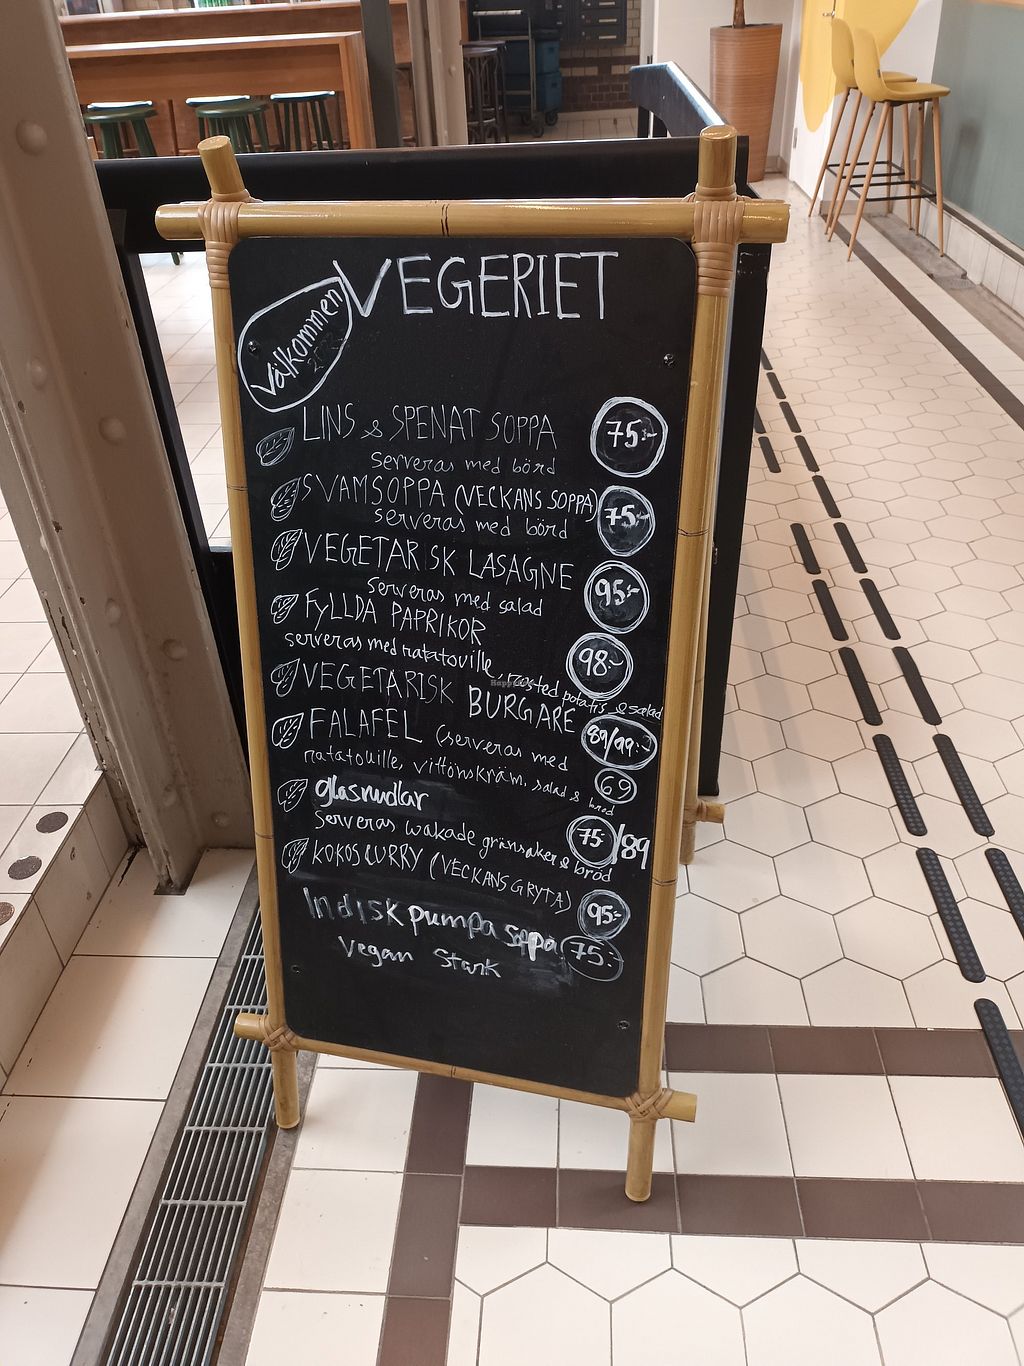 VEGERIET
Välkommen
LINS & SPENAT SOPPA 75:-
serveras med börd
SVAMSOPPA (VECKANS SOPPA) 75:-
serveras med börd
VEGETARISK LASAGNE 95:-
serveras med salad
FYLLDA PAPRIKOR
serveras med ratatouille, rosted potatis & salad 98:-
VEGETARISK BURGARE 89/99:-
FALAFEL (serveras med
ratatouille, vittönskräm, salad & bröd 69
glasnudlar
serveras wakade grönsaker & bröd 75:/89
KOKOS CURRY (VECKANS GRYTA) 95:-
Indisk pumpa soppa 75:-
vegan stark